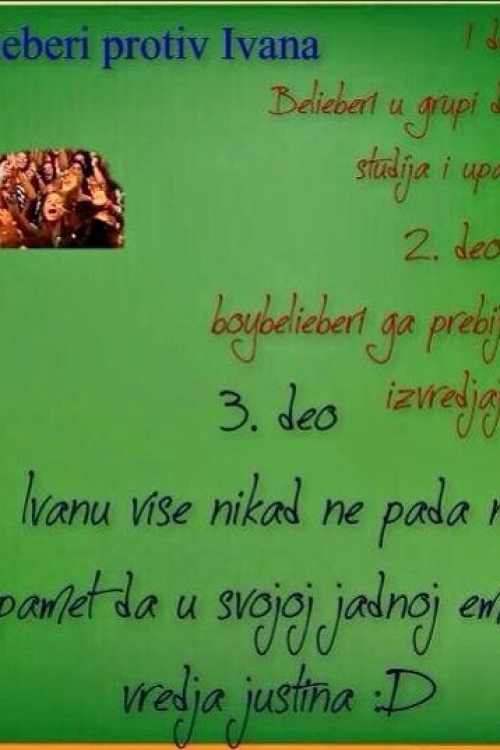 eberi protiv Ivana
1 d
Belieberi u grupi d
studija i upa
2. deo
boybelieberi ga prebij
izvredjaj
3. deo
Ivanu vise nikad ne pada n
pamet da u svojoj jadnoj em
vredja justina :D